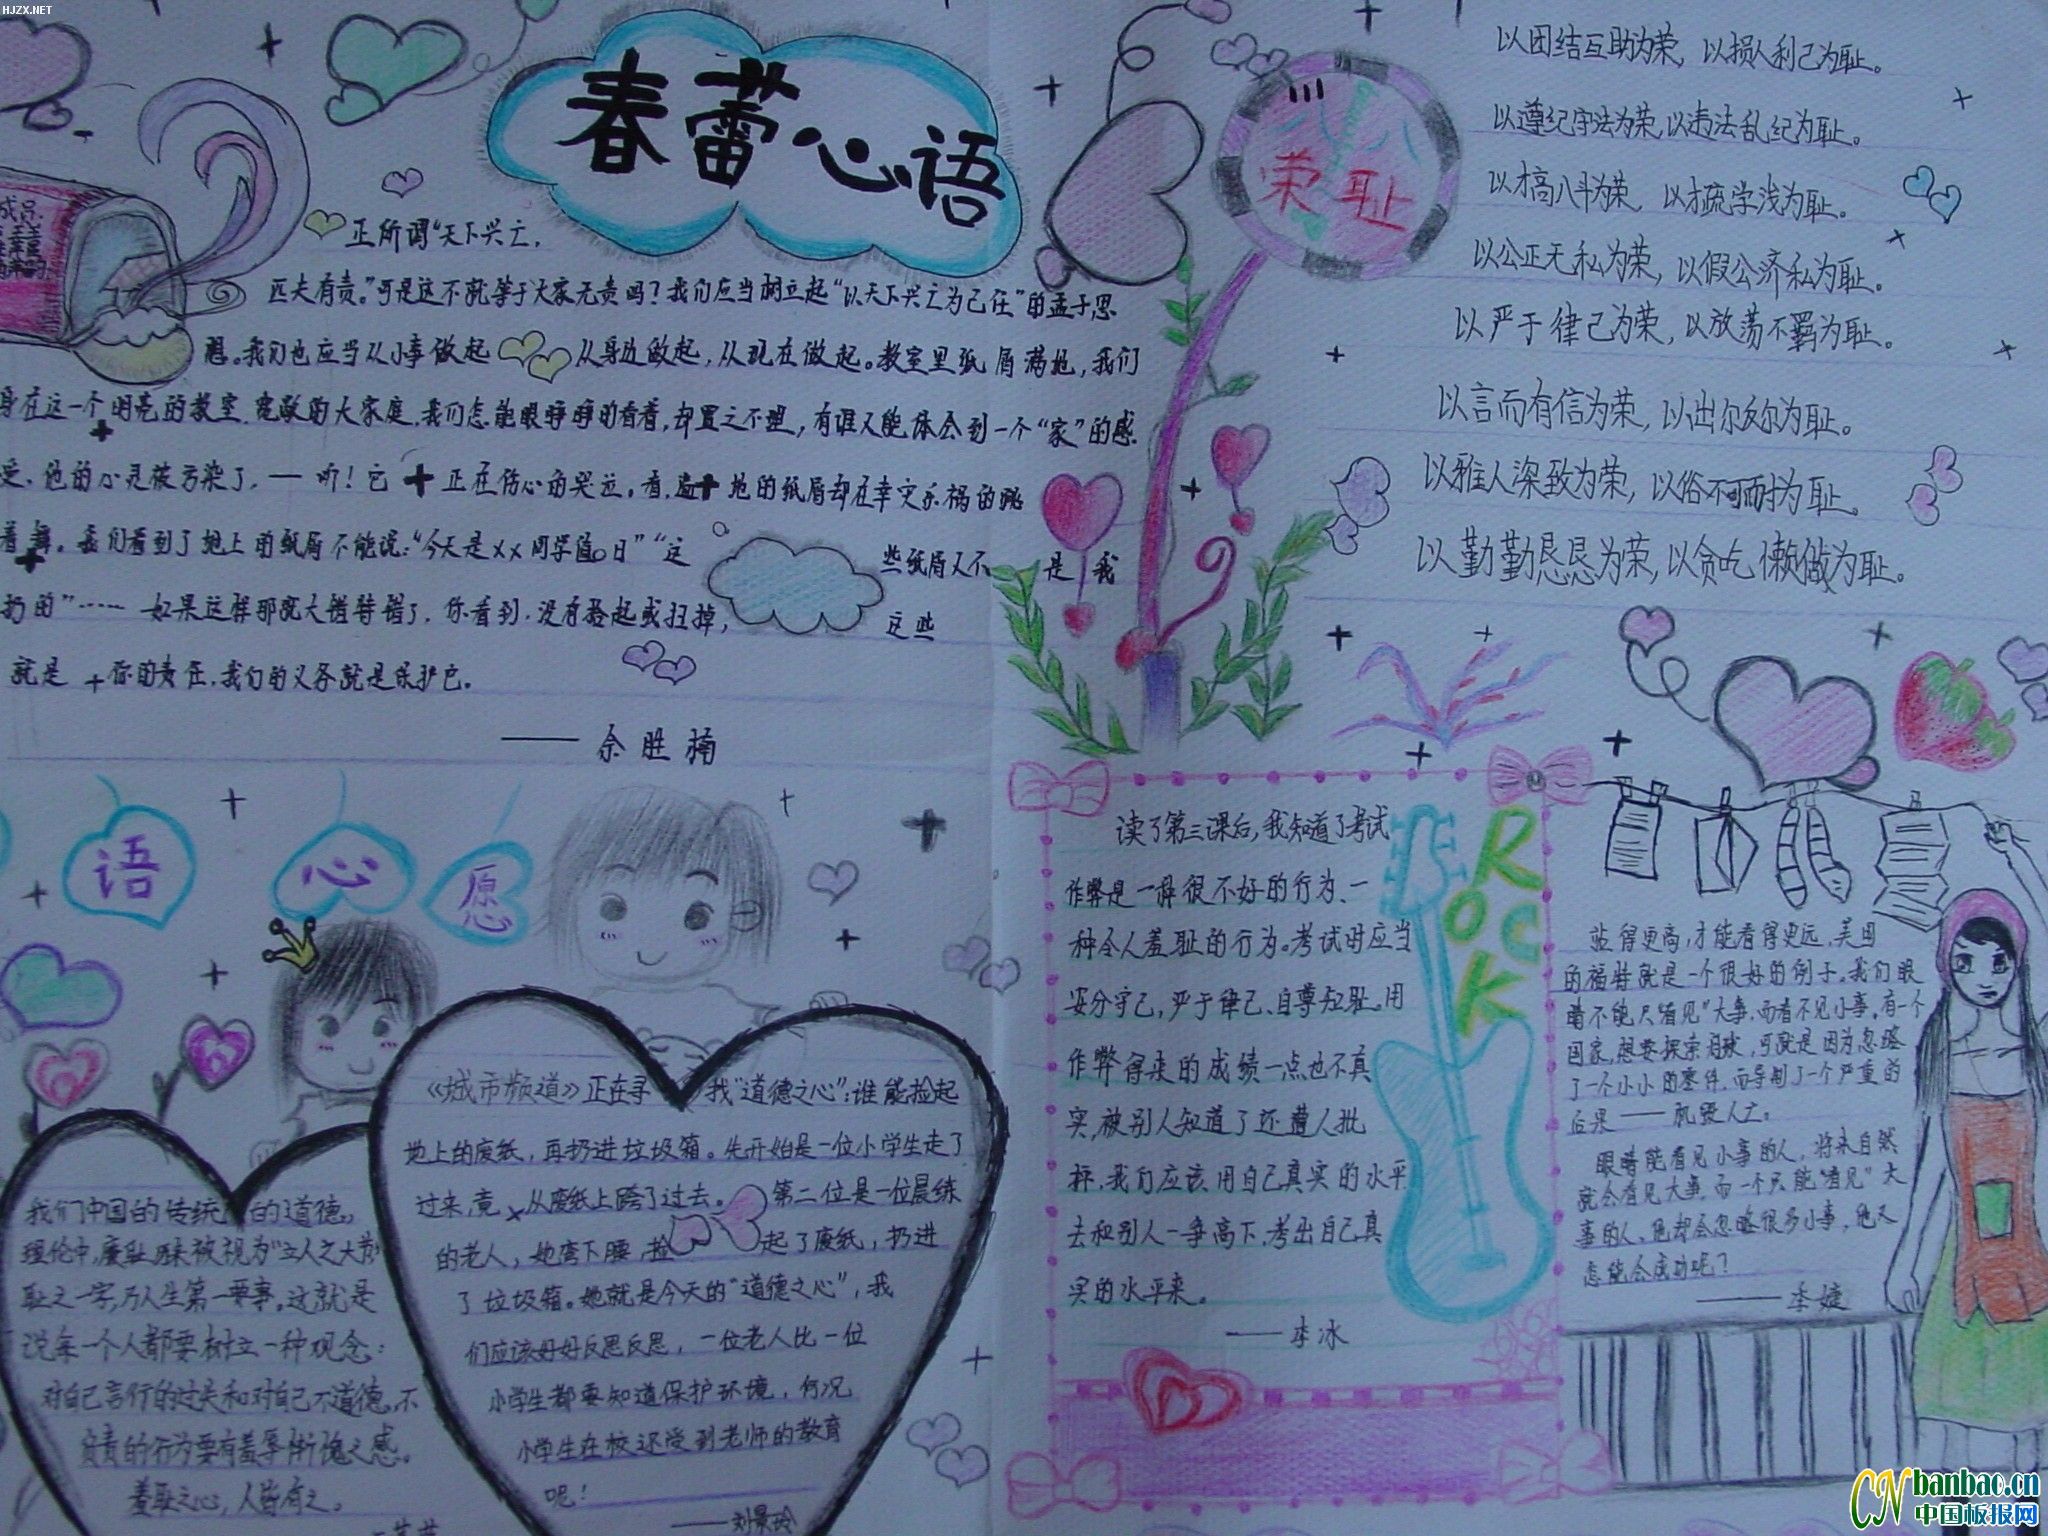 HJZX.NET
春蕾心语
正所谓“天下兴亡，
匹夫有责。”可是这不就等于大家无责吗？我们应当树立起“以天下兴亡为己任”的孟子思
想。我们也应当从小事做起 从身边做起，从现在做起。教室里纸屑满地，我们
身在这一个明亮的教室，宽敞的大家庭，我们怎能眼睁睁的看着，却置之不理，有谁又能体会到一个“家”的感
受，他的心灵被污染了，—听！它正在伤心的哭泣。看，遍地的纸屑却在幸灾乐祸的跳
着舞。我们看到了地上的纸屑不能说：“今天是××同学值日”“这 些纸屑又不是我
扔的”…… 如果这样那就大错特错了，你看到，没有捡起或扫掉， 这些
就是你的责任，我们的义务就是保护它。
——余胜楠
荣耻
以团结互助为荣，以损人利己为耻。
以遵纪守法为荣，以违法乱纪为耻。
以才高八斗为荣，以才疏学浅为耻。
以公正无私为荣，以假公济私为耻。
以严于律己为荣，以放荡不羁为耻。
以言而有信为荣，以出尔反尔为耻。
以雅人深致为荣，以俗不可耐为耻。
以勤勤恳恳为荣，以贪吃懒做为耻。
语 心 愿
我们中国的传统 的道德。
理伦中，廉耻 被视为“立人之大节
耻之一字，乃人生第一要事。这就是
说每一个人都要树立一种观念：
对自己言行的过失和对自己不道德，不
负责的行为要有羞辱惭愧之感。
羞耻之心，人皆有之。
《城市频道》正在寻 找“道德之心”：谁能捡起
地上的废纸，再扔进垃圾箱。先开始是一位小学生走了
过来，竟从废纸上跨了过去。 第二位是一位晨练
的老人，她弯下腰，捡 起了废纸，扔进
了垃圾箱。她就是今天的“道德之心”，我
们应该好好反思反思，一位老人比一位
小学生都要知道保护环境，何况
小学生在校还受到老师的教育
呢！
——刘景玲
读了第三课后，我知道了考试
作弊是一种很不好的行为、一
种令人羞耻的行为。考试时应当
安分守己，严于律己、自尊知耻。用
作弊得来的成绩一点也不真
实，被别人知道了还遭人批
评，我们应该用自己真实的水平
去和别人一争高下，考出自己真
实的水平来。
——李冰
ROCK
站得更高，才能看得更远，美国
的福特就是一个很好的例子。我们眼
睛不能只“看见”大事，而看不见小事。有一个
国家，想要探索月球，可就是因为忽略
了一个小小的零件，而导制了一个严重的
后果——机毁人亡。
眼睛能看见小事的人，将来自然
就会看见大事，而一个只能“看见”大
事的人、他却会忽略很多小事，他又
怎能会成功呢？
——李婕
CN banbao.cn
中国板报网